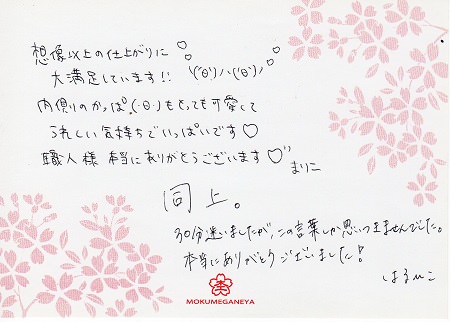 想像以上の仕上がりに♡♡
大満足しています!! \('θ')ハ('θ')ノ
内側のかっぱ(・θ・)もとっても可愛くて
うれしい気持ちでいっぱいです♡
職人様 本当にありがとうございます♡"
まりこ
同上。
30分迷いましたが、この言葉しか思いつきませんでした。
本当にありがとうございました!
はるひこ
MOKUMEGANEYA